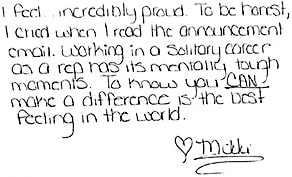 I feel... incredibly proud. To be honest,
I cried when I read the announcement
email. Working in a solitary career
as a rep has its mentally tough
moments. To know you CAN
make a difference is the best
feeling in the world.
♡ Mikki